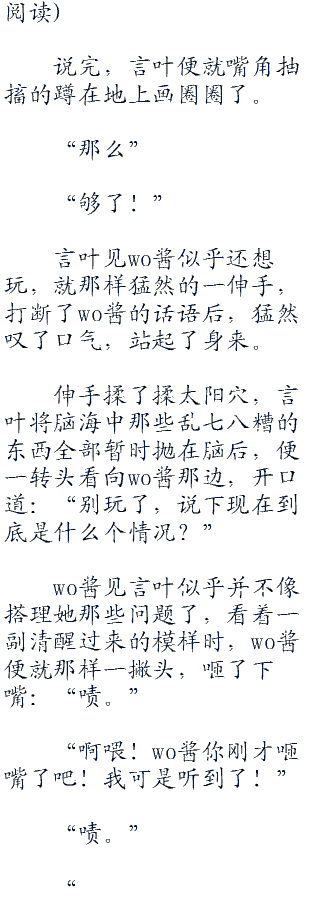 阅读)
说完，言叶便就嘴角抽
搐的蹲在地上画圈圈了。
“那么”
“够了！”
言叶见wo酱似乎还想
玩，就那样猛然的一伸手，
打断了wo酱的话语后，猛然
叹了口气，站起了身来。
伸手揉了揉太阳穴，言
叶将脑海中那些乱七八糟的
东西全部暂时抛在脑后，便
一转头看向wo酱那边，开口
道：“别玩了，说下现在到
底是什么个情况？”
wo酱见言叶似乎并不像
搭理她那些问题了，看着一
副清醒过来的模样时，wo酱
便就那样一撇头，咂了下
嘴：“啧。”
“啊喂！wo酱你刚才咂
嘴了吧！我可是听到了！”
“啧。”
“